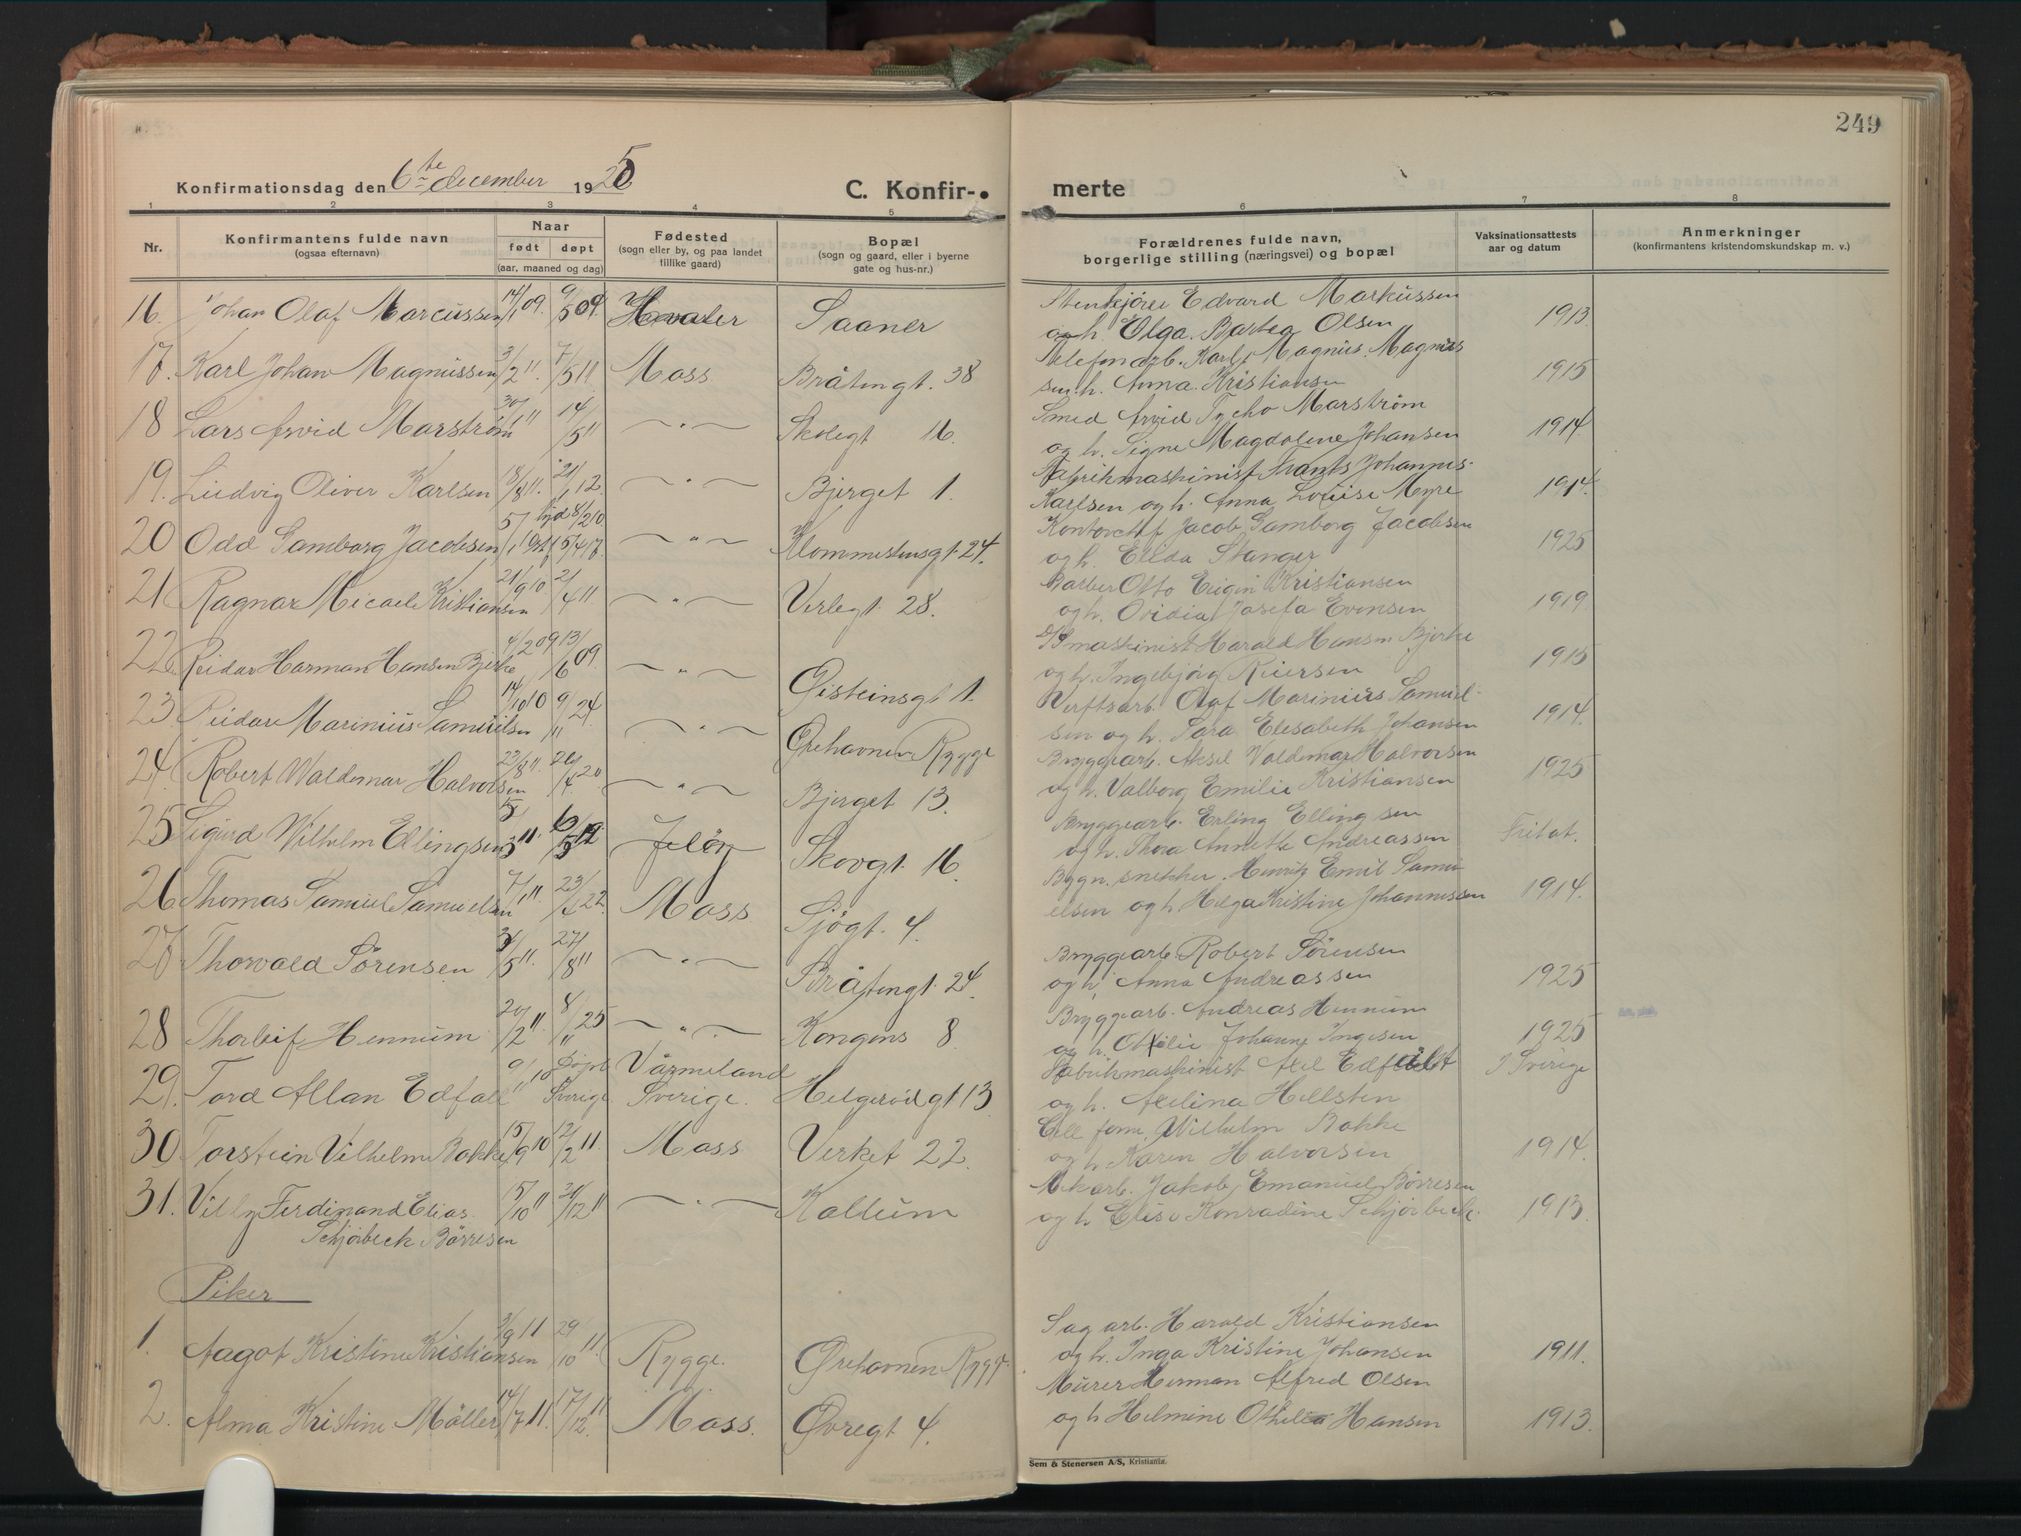 249
Konfirmationsdag den 6te december 1925
C. Konfir- merte
1 2 3 4 5 6 7 8
Nr. Konfirmantens fulde navn (ogsaa efternavn) Naar født døpt (aar, maaned og dag) Fødested (sogn eller by, og paa landet tillike gaard) Bopæl (sogn og gaard, eller i byerne gate og hus-nr.) Forældrenes fulde navn, borgerlige stilling (næringsvei) og bopæl Vaksinationsattests aar og datum Anmerkninger (konfirmantens kristendomskundskap m. v.)
16. Johan Olaf Marcussen 14/1 09. 9/5 09. Hvaler Saaner Stenkjører Edvard Markussen
og h. Olga Bartea Olsen 1913
17. Karl Johan Magnussen 3/2 11. 7/5 11 Moss Bråtengt. 38 Telefonarb. Karl Magnus Magnus
sen h. Anna Kristiansen 1915
18 Lars Arvid Marström 30/1 11 14/5 11 — " — Skolegt 16. Smed Arvid Tycho Marström
og h. Signe Magdalene Johansen 1914
19. Ludvig Oliver Karlsen 18/8 11. 21/1 12. — " — Bjerget 1. Fabrikmaskinist Frants Johannes
Karlsen og h. Anna Lovise Myre 1914.
20 Odd Gamborg Jacobsen — " — Klommestensgt. 24. Kontorchef Jacob Gamborg Jacobsen
og h. Ellda Stanger 1925
21 Ragnar Micael Kristiansen 21/9 10 2/4 11 — " — Verlegt. 28. Barber Otto Eugin Kristiansen
og h. Ovidia Josefa Evensen 1919
22 Reidar Harman Hansen Bjerke 4/2 09 13/6 09. — " — Øisteinsgt 1. D/S maskinist Harald Hansen Bjerke
og h. Ingebjørg Reiersen 1915
23 Reidar Marinius Samuelsen 14/10 10 9/11 24. — " — Ørehavnen Rygge Verftsarb. Olaf Marinius Samuel-
sen og h. Sara Elesabeth Johansen 1914.
24. Robert Waldemar Halvorsen 22/8 11. 26/4 20 — " — Bjerget 13. Bryggearb. Aksel Valdemar Halvorsen
og h. Valborg Emilie Kristiansen 1925
25 Sigurd Vilhelm Ellingsen 5/3 11. Jeløy Skovgt. 16. Bryggearb. Erling Ellingsen
og h. Thora Annette Andreassen Fritat.
26 Thomas Samuel Samuelsen 7/1 11. 23/4 22. Moss Sjøgt. 4. Bygn. snekker Henrik Emil Samu
elsen og h Helga Kristine Johannessen 1914.
27 Thorvald Sørensen 3/5 11. 27/8 11 — " — Bråtengt. 24. Bryggearb. Robert Sørensen
og h. Anna Andreassen 1925
28 Thorleif Hennum 20/2 11. 8/11 25 — " — Kongens 8. Bryggearb. Andreas Hennum
og h. Otilie Johanne Ingesen 1925
29. Tord Allan Edfalt 9/11 10 Döpt Sverige Värmeland Sverige. Helgerödgt 13 Fabrikmaskinist Axel Edfalt
og h. Axelina Hellsten I Sverige
30 Torstein Vilhelm Bakke 15/9 10 12/2 11 Moss Verket 22. Cell form. Wilhelm Bakke
og h. Karen Halvorsen 1914.
31. Villy Ferdinand Elias Schjørbeck Börresen 15/10 11 31/12 11 — " — Kallum Mek arb. Jakob Emanuel Börresen
og h Elise Konradine Schjørbeck. 1913.
Piker
1. Aagot Kristine Kristiansen 3/9 11 29/10 11. Rygge. Ørehavnen Rygge. Sag arb. Harald Kristiansen
og h. Inga Kristine Johansen 1911.
2. Alma Kristine Möller 14/7 11. 17/12 11 Moss. Øvregt 4. Murer Herman Alfred Olsen
og h Helmine Othelia Hansen 1913.
Sem & Stenersen A/S, Kristiania.